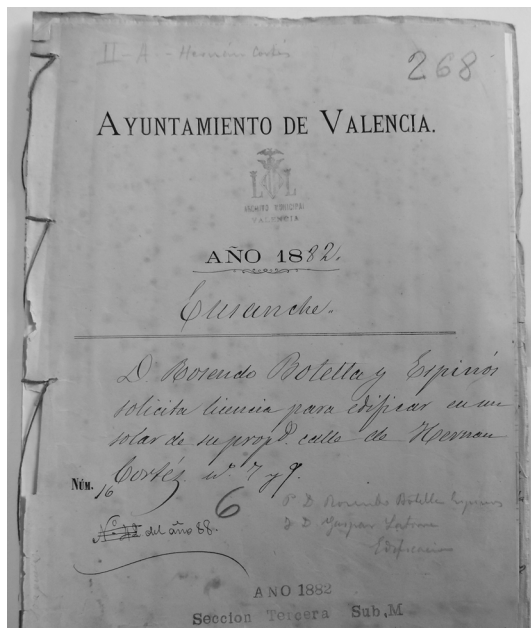 II-A - Hernán Cortés
268
AYUNTAMIENTO DE VALENCIA.
VALENCIA
AÑO 1882.
Ensanche.
D. Rosendo Botella y Espinós
solicita licencia para edificar en un
solar de su propd. calle de Hernan
Cortés nº. 7 y 9.
NÚM. 16
6
del año 88.
P. D. Rosendo Botella Espinós
Edificación
AÑO 1882
Seccion Tercera Sub.M